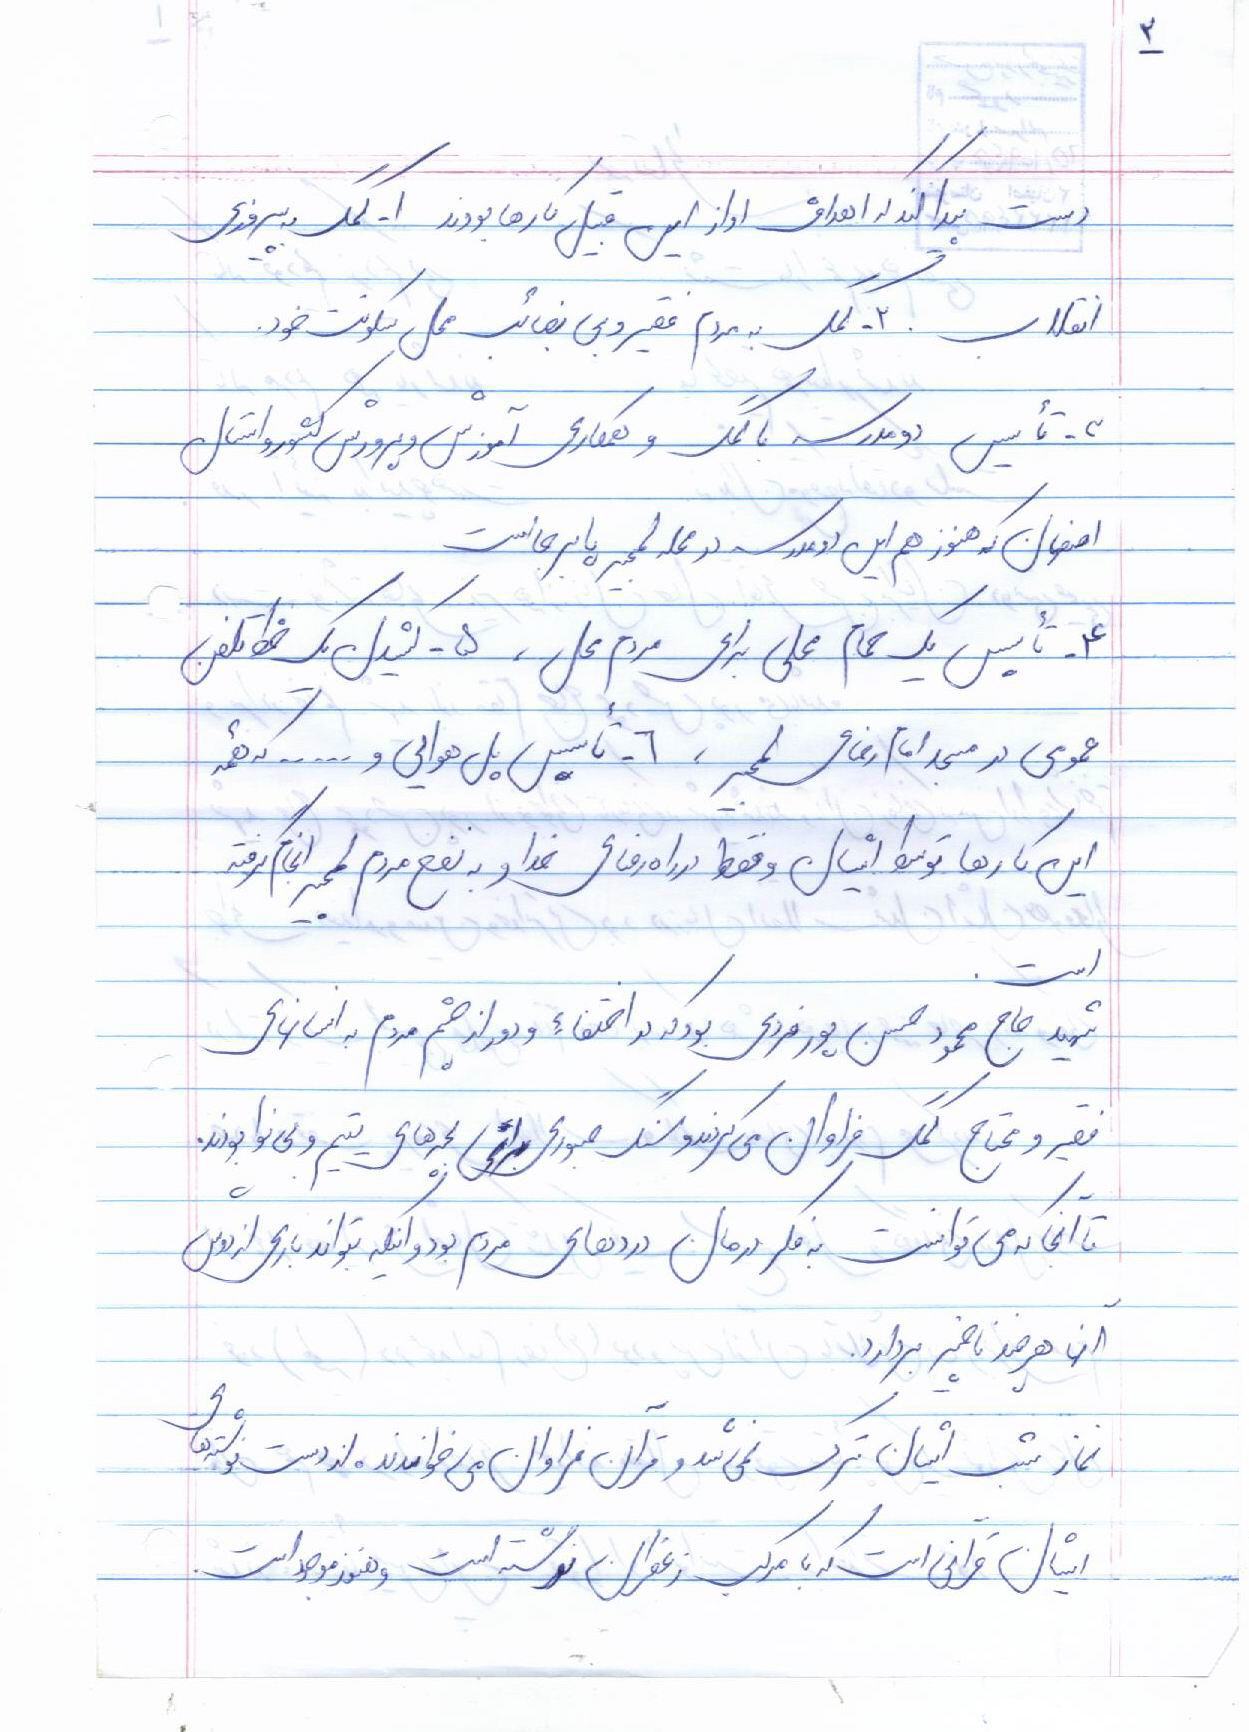 ۳
دست پیدا کند که اهداف او از این قبیل کارها بودند ۱- کمک به پیروزی
انقلاب . ۲- کمک به مردم فقیر و بی بضاعت محل سکونت خود.
۳- تأسیس دو مدرسه با کمک و همکاری آموزش و پرورش کشور و استان
اصفهان که هنوز هم این دو مدرسه در محله لمجیر پا برجاست
۴- تأسیس یک حمام محلی برای مردم محل ، ۵- کشیدن یک خط تلفن
عمومی در مسجد امام رضای لمجیر ، ٦- تأسیس پل هوایی و ...... که همه
این کارها توسط ایشان و فقط در راه رضای خدا و به نفع مردم لمجیر انجام گرفته
است .
شهید حاج محمود حسن پور فردی بود که در اختفاء و دور از چشم مردم به انسانهای
فقیر و محتاج کمک فراوان می کردند و سنگ صبوری برای بچه های یتیم و بی نوا بودند.
تا آنجا که می توانست به فکر درمان دردهای مردم بود و اینکه بتواند باری از دوش
آنها هر چند ناچیز بردارد.
نماز شب ایشان ترک نمی شد و قرآن فراوان می خواندند. از دست نوشته های
ایشان قرآنی است که با مرکب زعفران نوشته است و هنوز موجود است.